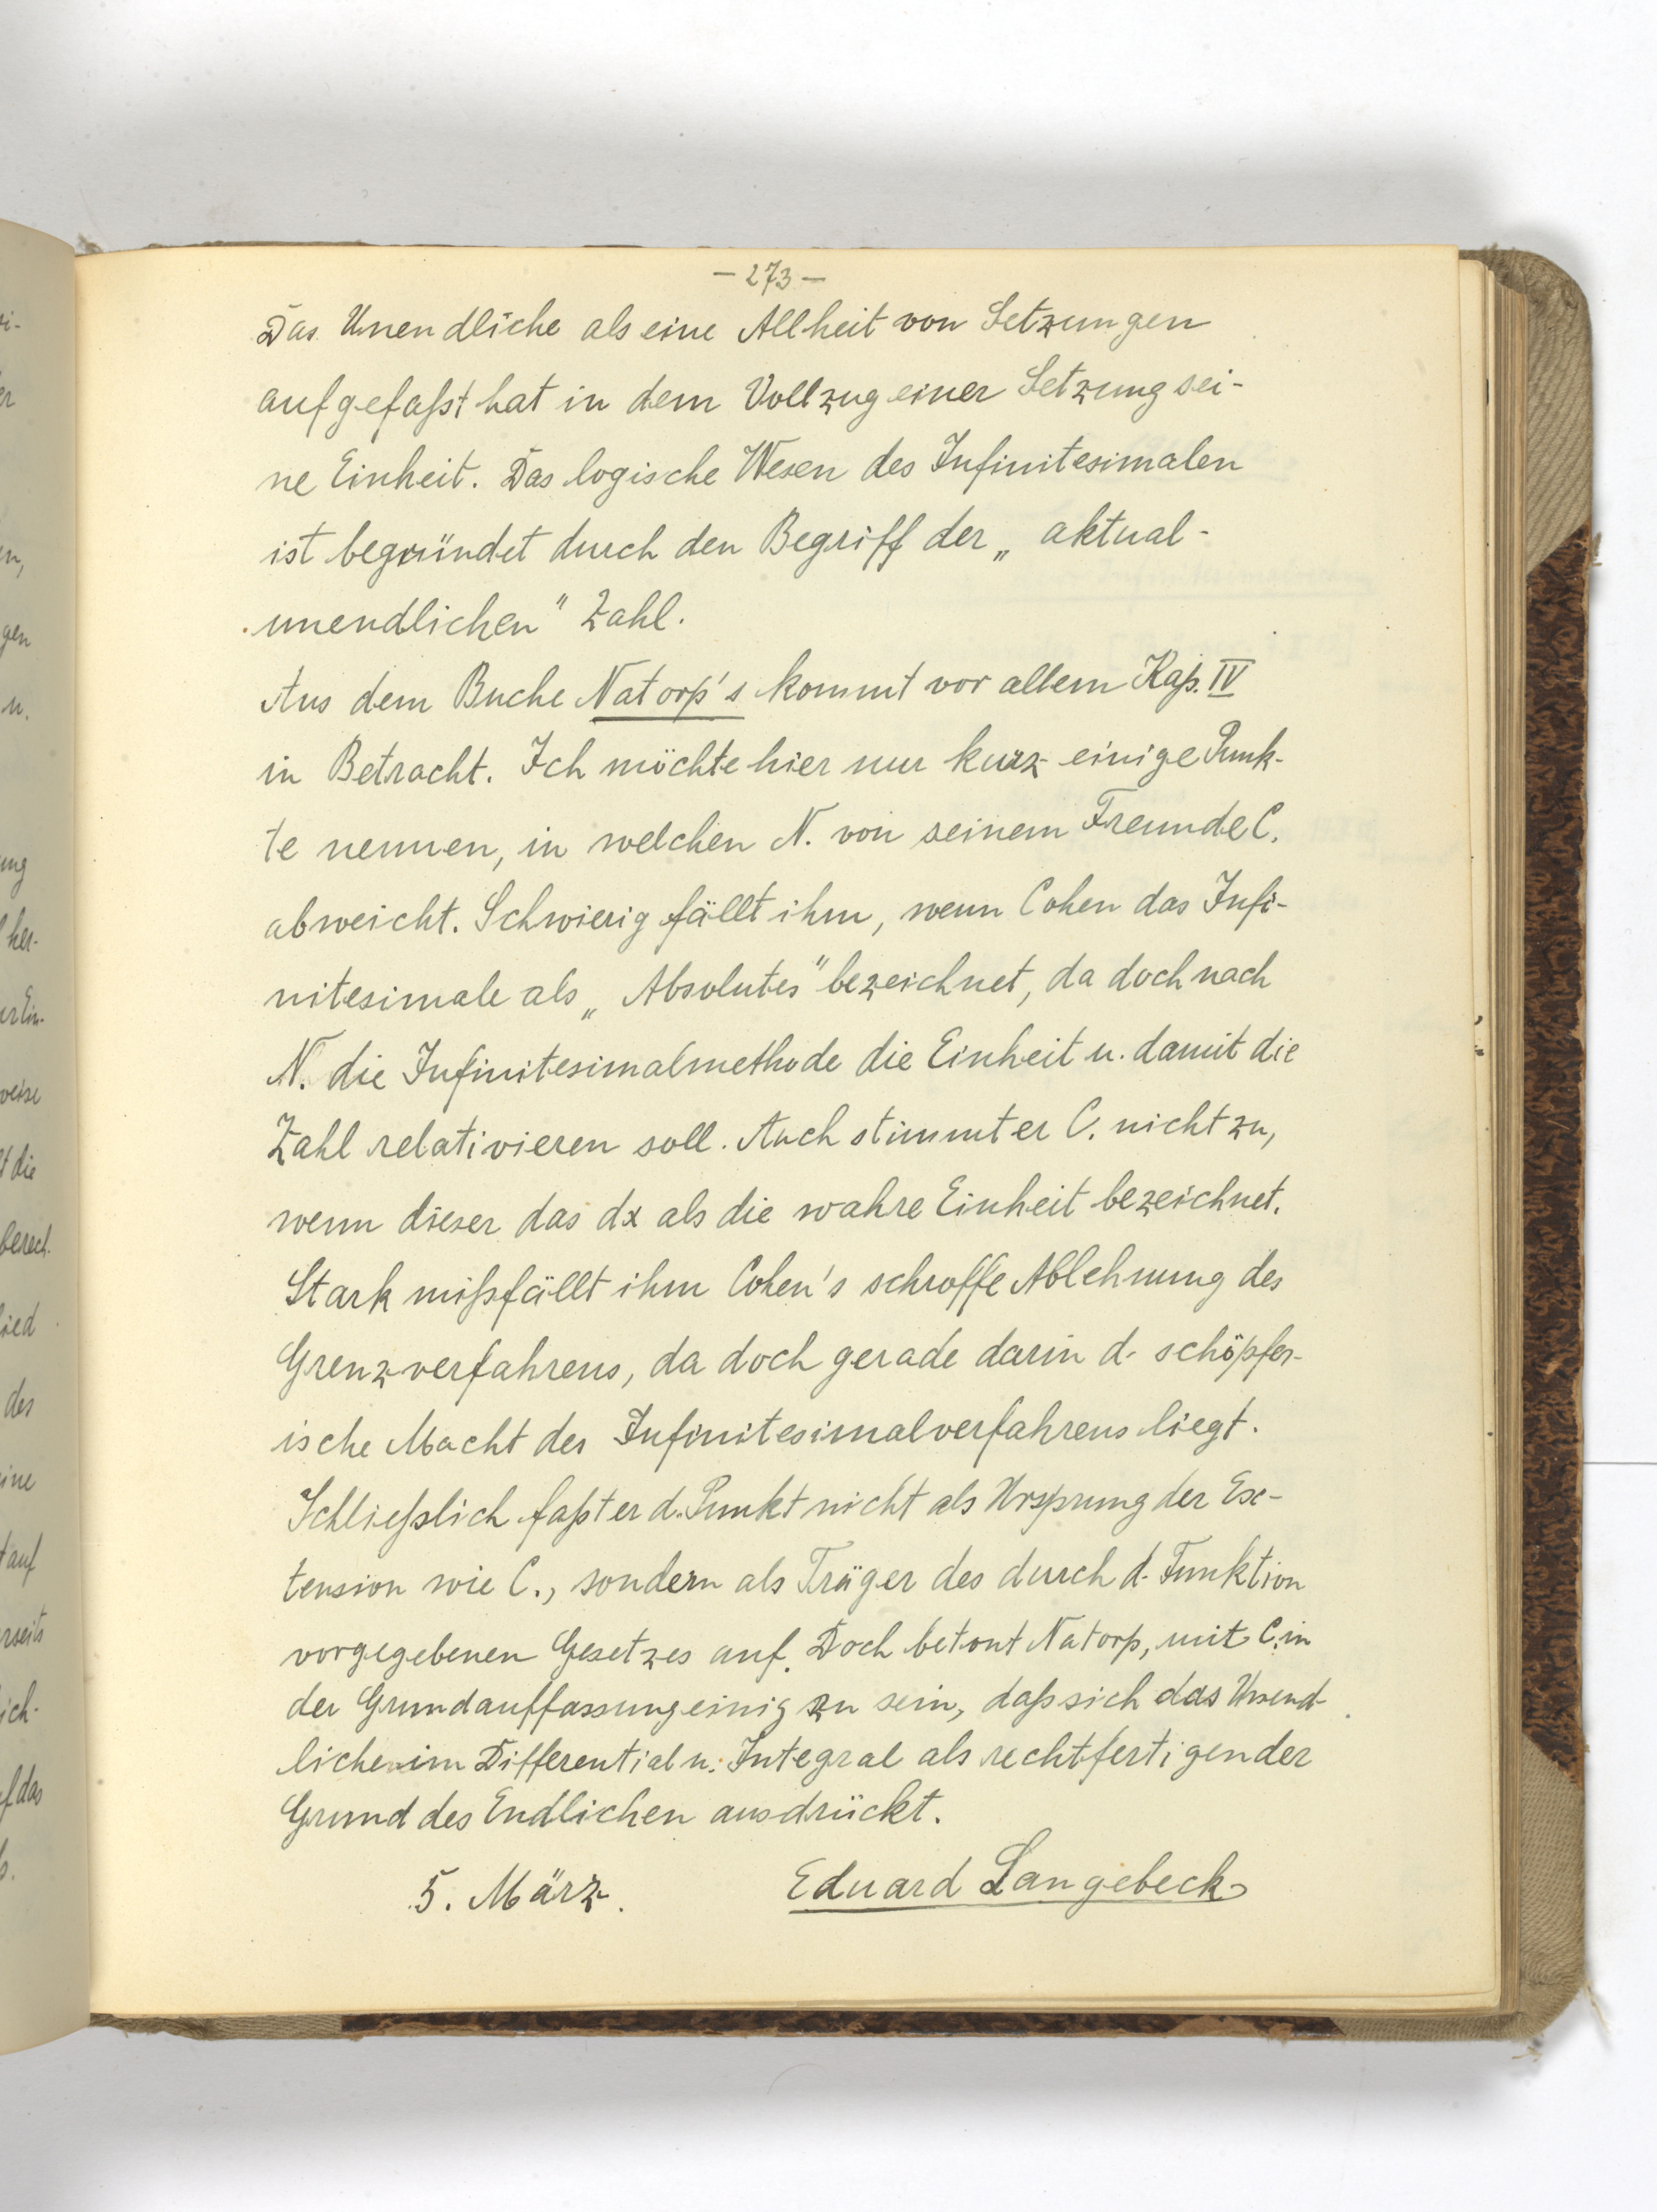 – 273 –
Das Unendliche als eine Allheit von Setzungen
aufgefaßt hat in dem Vollzug einer Setzung sei-
ne Einheit. Das logische Wesen des Infinitesimalen
ist begründet durch den Begriff der „aktual-
unendlichen" Zahl.
Aus dem Buche Natorp's kommt vor allem Kap. IV
in Betracht. Ich möchte hier nur kurz einige Punk-
te nennen, in welchen N. von seinem Freunde C.
abweicht. Schwierig fällt ihm, wenn Cohen das Infi-
nitesimale als „Absolutes" bezeichnet, da doch nach
N. die Infinitesimalmethode die Einheit u. damit die
Zahl relativieren soll. Auch stimmt er C. nicht zu,
wenn dieser das dx als die wahre Einheit bezeichnet.
Stark mißfällt ihm Cohen's schroffe Ablehnung des
Grenzverfahrens, da doch gerade darin d. schöpfer-
ische Macht des Infinitesimalverfahrens liegt.
Schließlich faßt er d. Punkt nicht als Ursprung der Ex-
tension wie C., sondern als Träger des durch d. Funktion
vorgegebenen Gesetzes auf. Doch betont Natorp, mit C. in
der Grundauffassung einig zu sein, daß sich das Unend-
liche im Differential u. Integral als rechtfertigender
Grund des Endlichen ausdrückt.
5. März. Eduard Langebeck